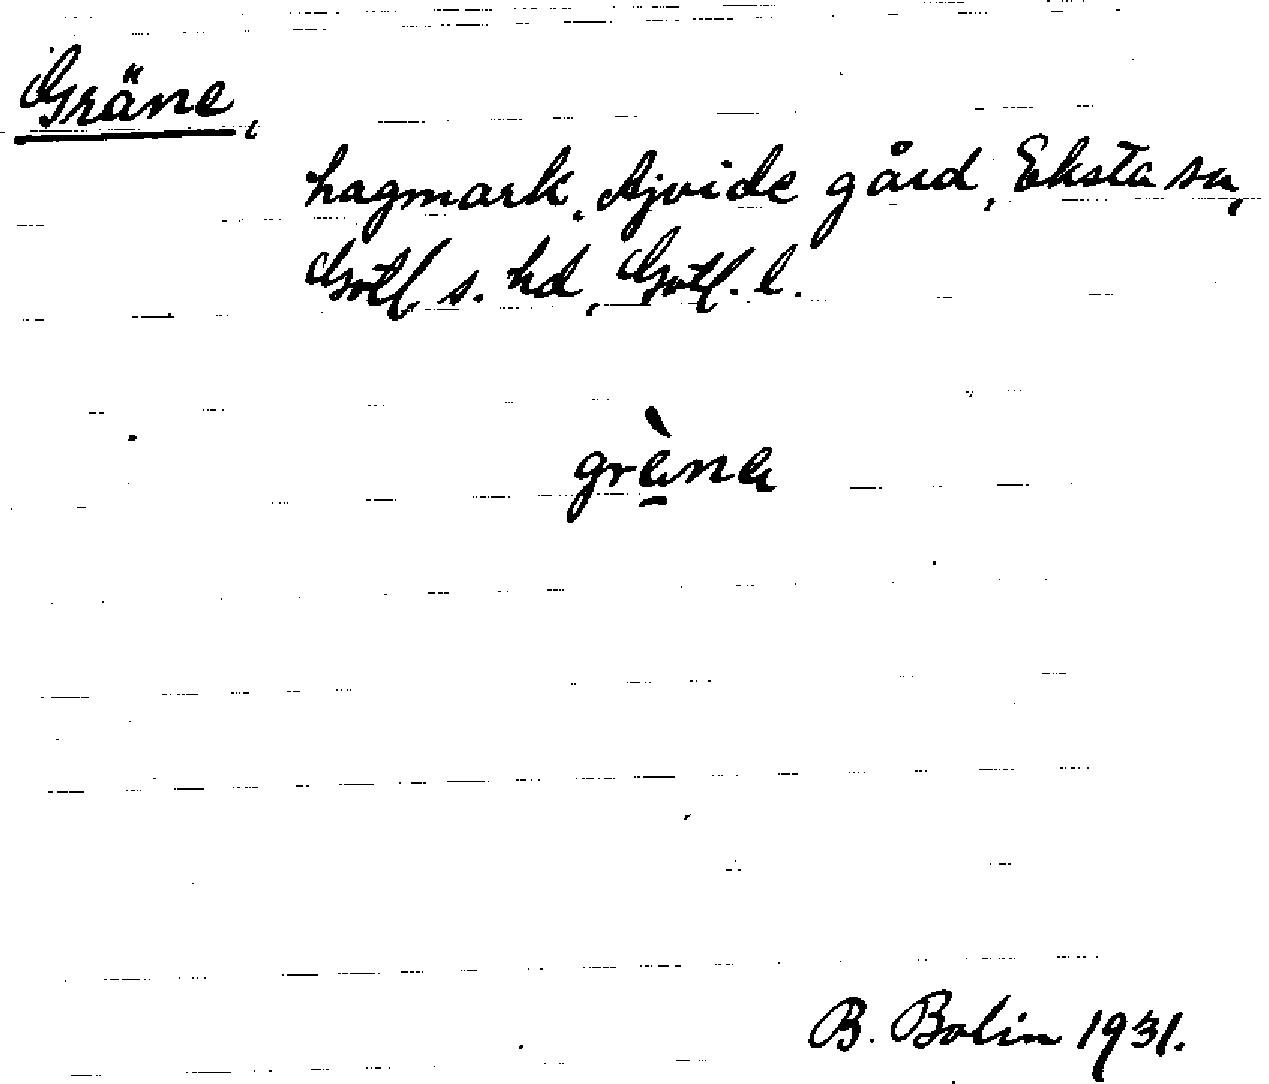 Gräne,
hagmark, Ajvide gård, Eksta sn,
Gotl. s. hd, Gotl. l.
grènę
B. Bolin 1931.